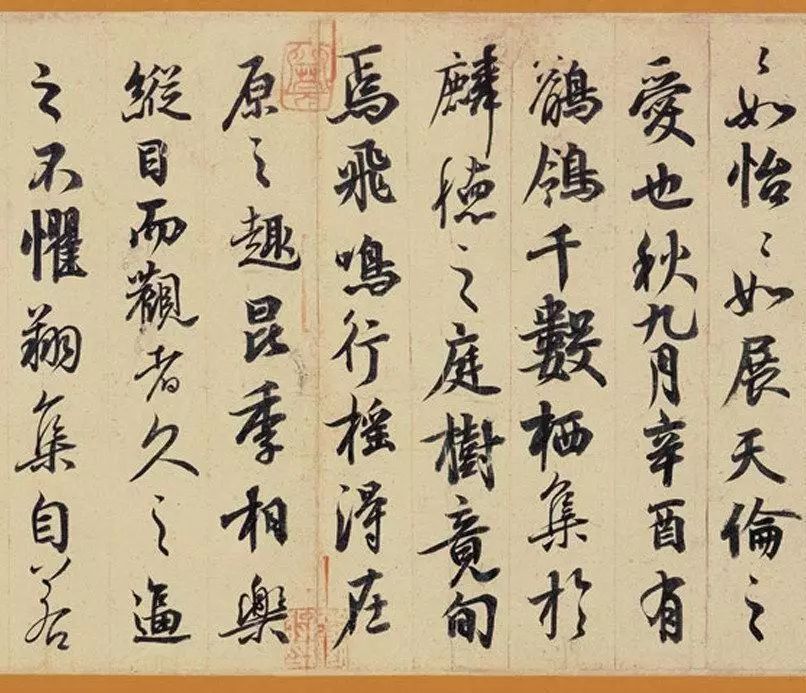 〻如怡〻如展天倫之
愛也秋九月辛酉有
鶺鴒千數栖集於
麟德之庭樹竟旬
焉飛鳴行揺得在
原之趣昆季相樂
縱目而觀者久之逼
之不懼翔集自若